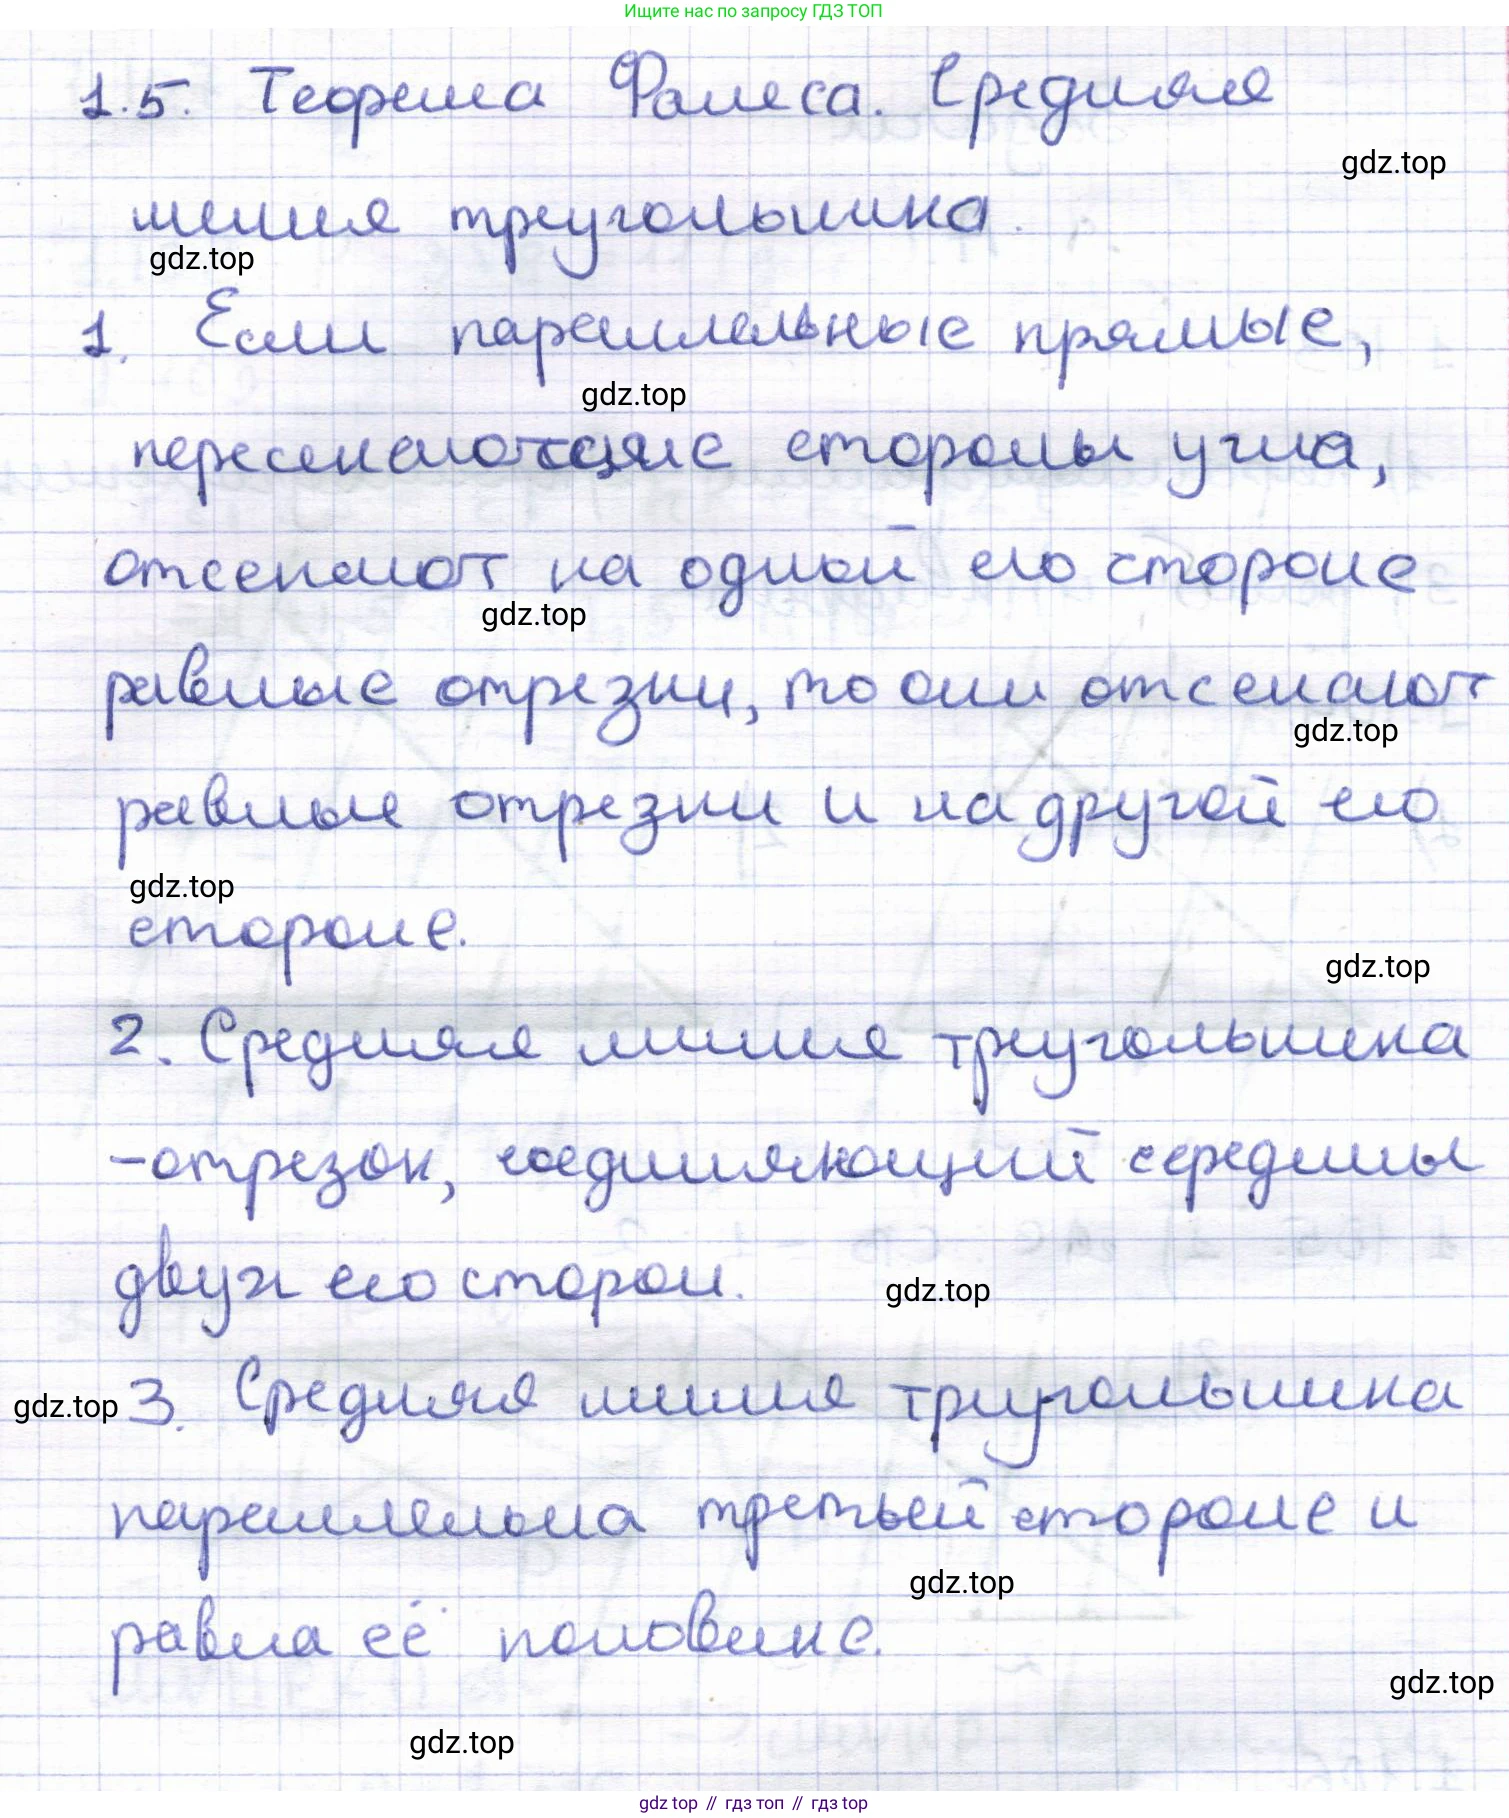 Ищите нас по запросу ГДЗ ТОП
1.5. Теорема Фалеса. Средняя
gdz.top
линия треугольника.
gdz.top
1. Если параллельные прямые,
gdz.top
пересекающие стороны угла,
отсекают на одной его стороне
gdz.top
равные отрезки, то они отсекают
gdz.top
равные отрезки и на другой его
gdz.top
стороне.
gdz.top
2. Средняя линия треугольника
-отрезок, соединяющий середины
двух его сторон.
gdz.top
gdz.top
3. Средняя линия треугольника
параллельна третьей стороне и
gdz.top
равна её половине.
gdz.top
gdz.top
gdz top // гдз топ // гдз top